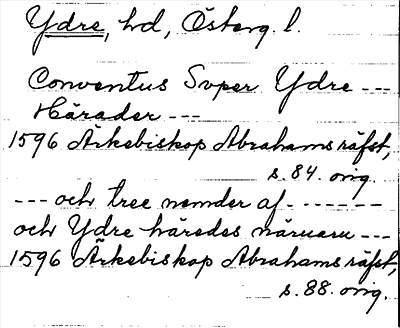 Ydre, hd, Österg. l.
Conventus Super Ydre ---
Härader ---
1596 Ärkebiskop Abrahams räfst,
s. 84. orig.
--- och tree nemder af - - - - - -
och Ydre häredes näruaru ---
1596 Ärkebiskop Abrahams räfst,
s. 88. orig.